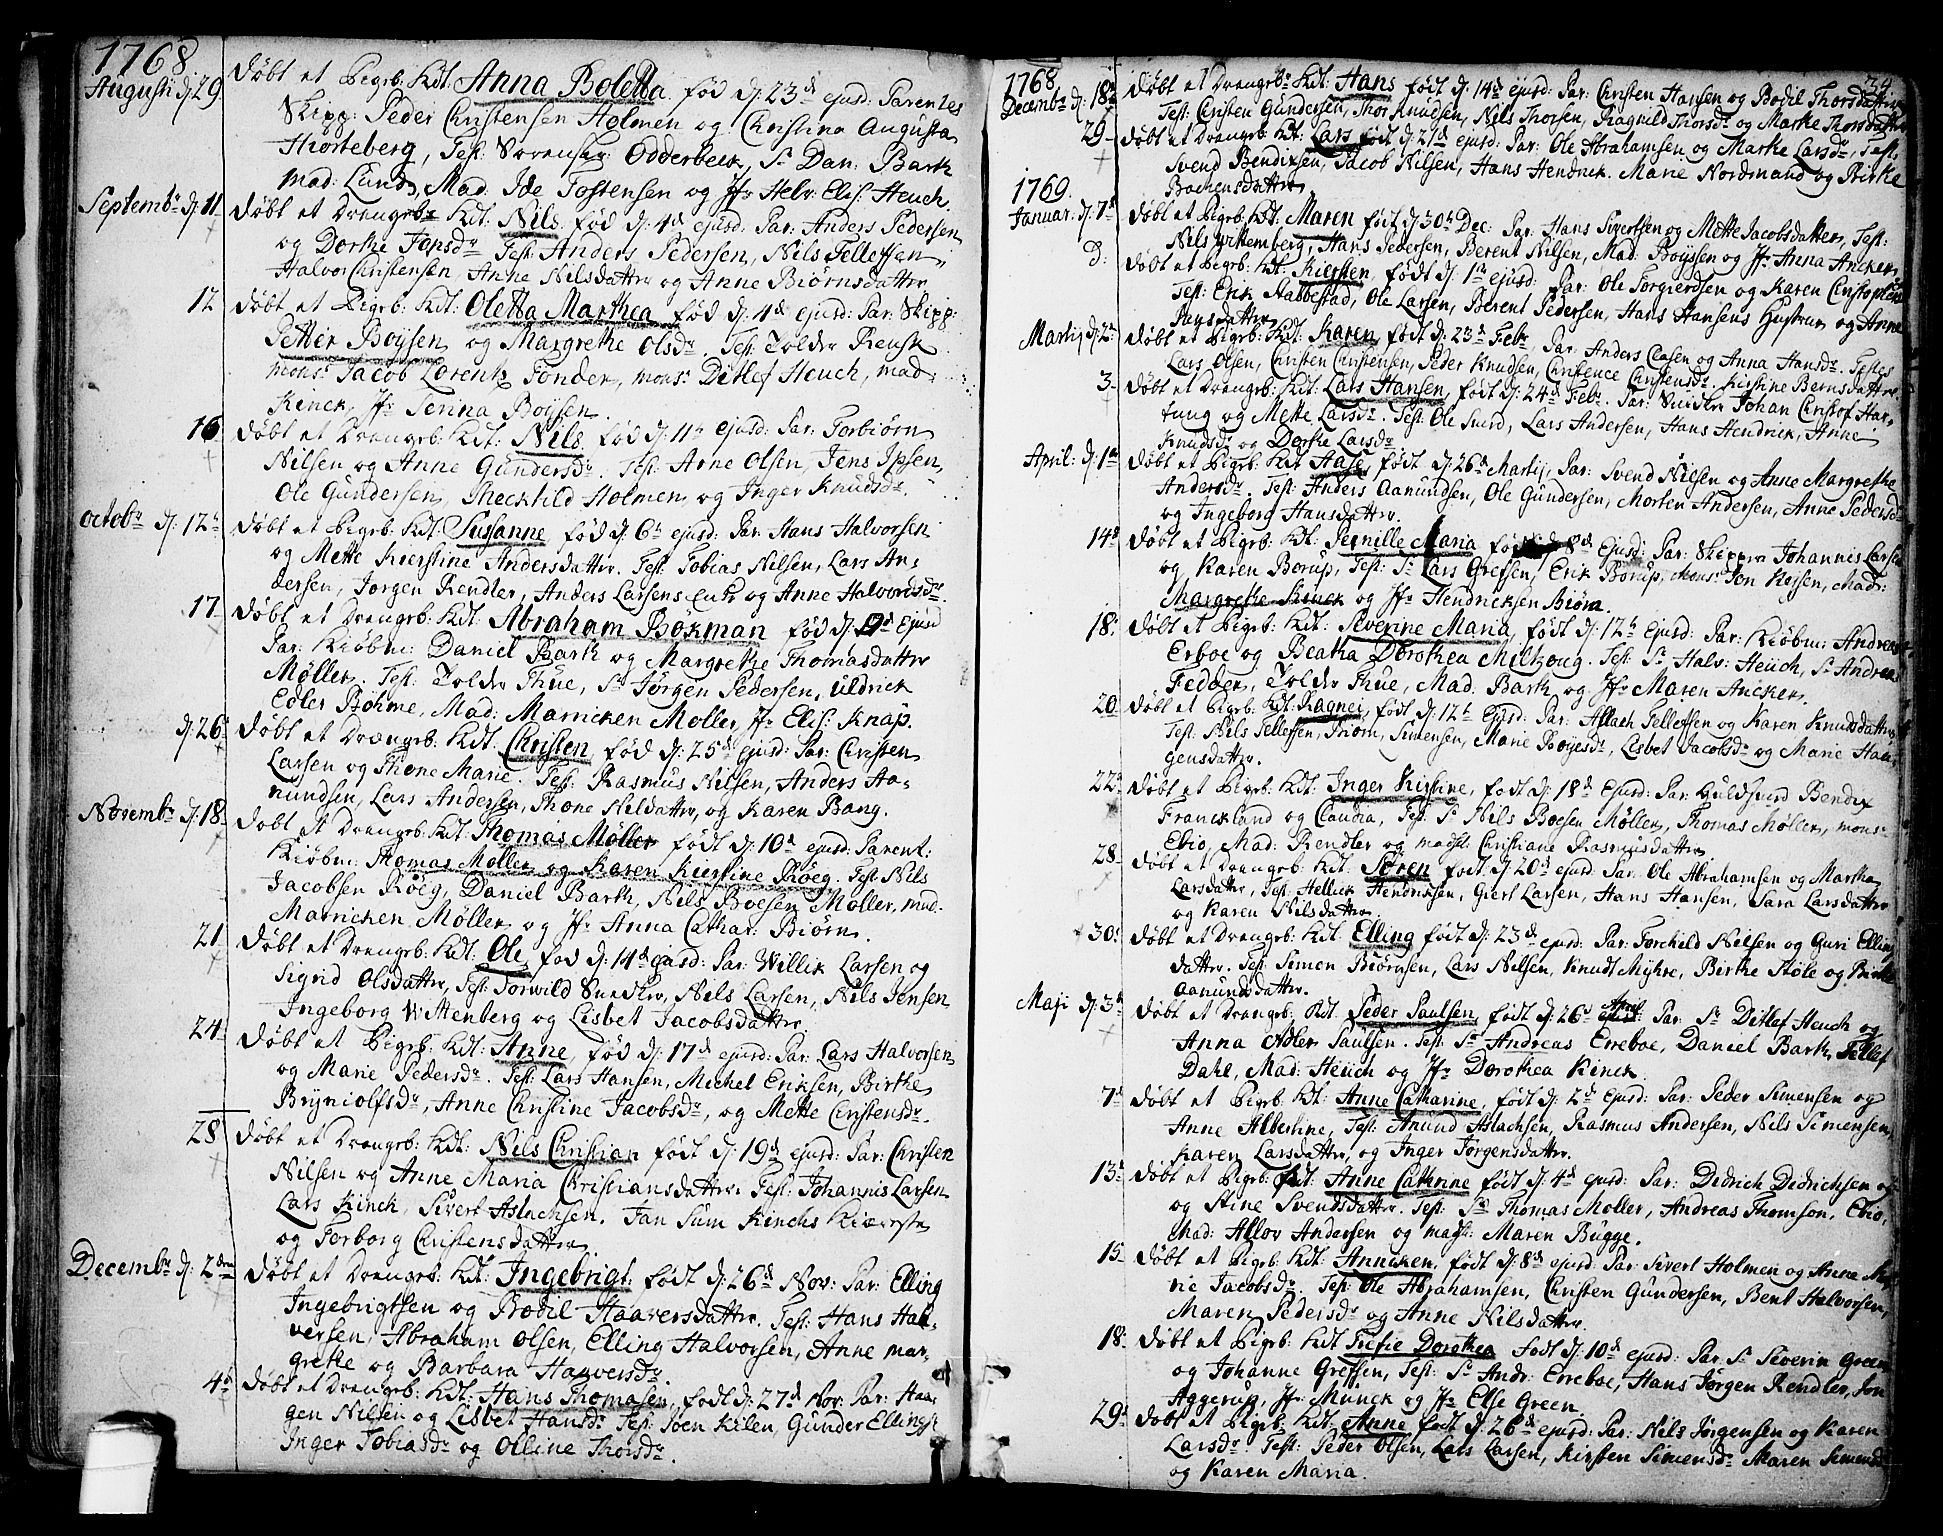 1768
Augusti d: 29. Døbt et Pigeb: Kdt: Anna Boletta fød d: 23d ejusd: Parentes
Skipp: Peder Christensen Holmen og Christina Augusta
Thorteberg, Test: Sorenser Odderbeck, Sr Dan: Barth
Mad: Lund, Mad. Ide Tostensen og Jfr Helv: Elis: Heuch
Septembr d: 11 døbt et Drengeb: Kdt: Nils fød d: 4d ejusd: Par: Anders Pedersen
og Dorthe Jensdr Test: Anders Pedersen, Nils Tellefsen,
Halvor Christensen Anne Nilsdattr og Anne Biørnsdattr
12 døbt et Pigeb: Kdt: Oletta Marthea fød d: 4d ejusd: Par: Skipp:
Petter Boysen og Margrethe Olsdr. Test: Toldr Rensk
mons: Jacob Lorentz Fonder, mons: Ditlef Heuch, mad:
Kinck, Jfr Serina Boysen.
16 døbt et Drengeb: Kdt: Nils fød d: 11te ejusd: Par: Torbiørn
Nilsen og Anne Gundersdr. Test: Arne Olsen, Jens Ipsen,
Ole Gundersen, Theckild Holmen og Inger Knudsdr.
Octobr d: 12te døbt et Pigeb: Kdt: Susanne, fød d: 6te ejusd: Par: Hans Halvorsen
og Mette Kierstine Andersdattr. Test: Tobias Nilsen, Lars An-
dersen, Jørgen Rendler, Anders Larsens og Anne Halvorsdr.
17. døbt et Drengeb: Kdt: Abraham Bökman fød d: 9d Ejusd
Par: Kiøbm: Daniel Barth og Margrethe Thomasdattr
Møller. Test: Toldr Thue, Sr Jørgen Pedersen, Uldrick
Edler Bøhme, Mad: Marricken Møller, Jfr Elis: Knap.
d: 26. døbt et Drengeb: Kdt: Christen, fød d: 25d ejusd: Par: Christen
Larsen og Thone Marie. Test: Rasmus Nilsen, Anders Aa-
nundsen, Lars Andersen, Thone Nilsdattr, og Karen Bang.
Novembr d: 18. døbt et Drengeb: Kdt: Thomas Møller født d: 10d ejusd: Parent:
Kiøbm: Thomas Møller og Karen Kierstine Røeg. Test: Nils
Jacobsen Røeg, Daniel Barth, Nils Boesen Møller, mad.
Marricken Møller og Jfr Anna Cathar: Biørn.
21 døbt et Drengeb: Kdt: Ole, fød d: 14d ejusd: Par: Willik Larsen og
Sigrid Olsdattr, Test: Torwild Sundbr, Nils Larsen, Nils Jensen
Ingeborg Wittenberg og Lisbet Jacobsdattr.
24. døbt et Pigeb: Kdt: Anne, fød d: 17d ejusd: Par: Lars Halvorsen
og Marie Pedersdr. Test: Lars Hansen, Michel Eriksen, Birthe
Bryniolfsdr, Anne Christine Jacobsdr, og Mette Christensdr.
28. døbt et Drengeb: Kdt: Nils Christian født d: 19d ejusd: Par: Christen
Nilsen og Anne Maria Christiansdattr. Test: Johannis Larsen
Lars Kinck, Sivert Aslachsen. Jan Sum Kinchs Kiæreste
og Torborg Christensdattr
Decembr d: 2den døbt et Drengeb: Kdt: Ingebrigt født d: 26d Nov: Par: Elling
Ingebrigtsen og Bodil Haaversdattr. Test: Hans Hal-
versen, Abraham Olsen, Elling Halvorsen, Anne mar-
grethe og Barbara Haaversdr.
4d døbt et Drengeb: Kdt: Hans Thomasen, født d: 27d Nov: Par: Haa-
gen Nilsen og Lisbet Hansdr Test: Joen Kilen, Gunder Ellings:
Inger Tobiasdr og Olline Thorsdr.
34.
1768
Decembr d: 18d døbt et Drengeb: Kdt: Hans født d: 14d ejusd: Par: Christen Hansen og Bodil Thorsdattr
Test: Christen Gundersen, Thor Knudsen, Nils Thorsen, Ragnild Thorsdr og Marthe Thorsdattr
29. døbt et Drengeb: Kdt: Lars født d: 21d ejusd: Par: Ole Abrahamsen og Marthe Larsdr, Test:
Svend Bendixsen, Jacob Nilsen, Hans Hendrick. Marie Nordmand og Birthe
Bochensdattr.
1769.
Januar: d: 7d døbt et Pigeb: Kdt: Maren født d: 30te Dec: Par: Hans Sivertsen og Mette Jacobsdatter, Test:
Nils Wittemberg, Hans Pedersen, Berent Nilsen, Mad: Boyssen og Jfr Anna Ancker.
d: døbt et Pigeb: Kdt: Kiersten, født d: 1te ejusd: Par: Ole Torgierdsen og Karen Christophersdr
Test: Erik Stabbestad, Ole Larsen, Berent Pedersen, Hans Hansens Hustrue og Anne
Paulsdattr.
Martij d: 2de døbt et Pigeb: Kdt: Karen født d: 23d Febr Par: Anders Clasen og Anna Hansdr. Testes
Lars Olsen, Christen Christensen, Peder Knudsen, Christence Christensdr. Kirstine Berntsdattr
3. døbt et Drengeb: Kdt: Lars Hansen, født d: 24d Febr. Par: Snedkr Johan Christof Har-
tung og Mette Larsdr. Test: Ole Smed, Lars Andersen, Hans Hendrick, Anne
Knudsdr og Dorthe Larsdr
April: d: 1te døbt et Pigeb: Kdt Aase, født d: 26d Martij, Par: Svend Nilsen og Anne Margrethe
Andersdr. Test: Anders Aanundsen, Ole Gundersen, Morten Andersen, Anne Pedersdr
og Ingeborg Hansdattr.
14d døbt et Pigeb: Kdt: Pernille Maria født d: 8d Ejusd: Par: Skippr Johannis Larsen
og Karen Borup, Test: Sr Lars Grefsen, Erik Borup, Mons: Jon Kojsen, Mad:
Margrethe Kinck og Jfr Hendricksen Biørn.
18. døbt et Pigeb: Kdt: Severine Maria, født d: 12te Ejusd: Par: Kiøbm: Andreas
Erboe og Beatha Dorothea Miltzoug. Test: Sr Halv: Heuch, Sr Andreas
Fedder, Toldr Thue, Mad. Barth og Jfr Maren Ancker.
20. døbt et Pigeb: Kdt: Ragnei, født d: 12te Ejusd: Par: Allach Tellefsen og Karen Knudsdattr,
Test: Nils Tellefsen, Thom. Simensen, Marie Boyesdr, Lisbet Jacobsdr og Marie Haa-
gensdattr.
22. døbt et Pigeb: Kdt: Inger Kirstine, født d: 18d Ejusd: Par: Guldsmed Bendix
Franckland og Claudia, Test: Sr Nils Boesen Møller, Thomas Møller, mons:
Ebio, Mad: Rendler og mads: Christiane Rasmusdattr
28. døbt et Drengeb: Kdt: Sören født d: 20d ejusd: Par: Ole Abrahamsen og Martha
Larsdattr, Test: Hellick Hendricksen, Giert Larsen, Hans Hansen, Sara Larsdattr
og Karen Nilsdattr.
30. døbt et Drengeb: Kdt: Elling født d: 23d ejusd: Par: Torchild Nilsen og Guri Elling
dattr. Test: Simen Biörnsen, Lars Nilsen, Knudt Myhre, Birthe Støle og Birthe
Aanundsdattr.
Maji d: 3d døbt et Drengeb: Kdt: Peder Paulsen, født d: 26d April Par: Sr Ditlef Heuch og
Anna Adler Paulsen. Test: Sr Andreas Erreboe, Daniel Barth, Tellef
Dahl, Mad: Heuch og Jfr Dorothea Kinck.
7d døbt et Pigeb: Kdt: Anne Catharine, født d: 2d Ejusd: Par: Peder Simensen og
Anne Albertine, Test: Anund Aslachsen, Rasmus Andersen, Nils Simensen,
Karen Larsdattr, og Inger Jørgensdattr.
13d døbt et Pigeb: Kdt: Anne Cathrine født d: 4d ejusd: Par: Didrich Didrichsen og
og Stine Svendsdattr. Test: Sr Thomas Møller, Andreas Thomson, Ebio,
Mad: Allov Andersen og mads: Maren Bugge.
15. døbt et Pigeb: Kdt: Annicken, født d: 8d ejusd: Par: Sivert Holmen og Anne Ma-
rie Jacobsdr Test: Ole Abrahamsen, Christen Gundersen, Bent Halvorsen,
Maren Pedersdr og Anne Nilsdattr.
18. døbt et Pigeb: Kdt Dorothea født d: 10d ejusd: Par: Sr Severin Green
og Johanne Greffen, Test: Sr Andr: Erreboe, Hans Jørgen Rendler, Jon
Aggerup, Jfr Munck og Jfr Else Green.
29d døbt et Pigeb: Kdt: Anne født d: 26d ejusd: Par: Nils Jørgensen og Karen
Larsdr Test: Peder Olsen, Lars Larsen, Kirsten Simensdr Maren Simensd
og Karen Maria.